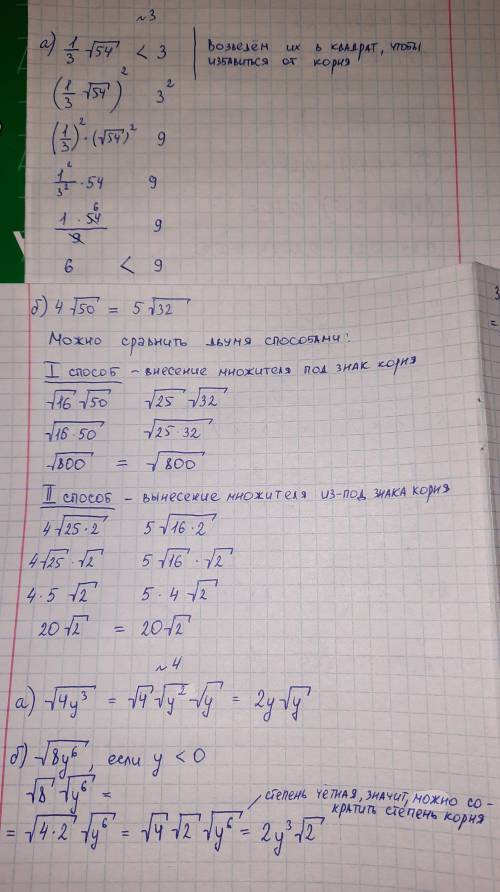 №3
а) 1/3 √54 < 3 | Возведём их в квадрат, чтобы
избавиться от корня
(1/3 √54)² 3²
(1/3)² · (√54)² 9
1²/3² · 54 9
1 · 54⁶/9 9
6 < 9
б) 4√50 = 5√32
Можно сравнить двумя способами:
I способ – внесение множителя под знак корня
√16 √50 √25 √32
√16·50 √25·32
√800 = √800
II способ – вынесение множителя из-под знака корня
4√25·2 5√16·2
4√25 · √2 5√16 · √2
4·5 √2 5·4 √2
20√2 = 20√2
№4
а) √4y³ = √4 √y² √y = 2y√y
б) √8y⁶, если y < 0
√8 √y⁶ =
степень чётная, значит, можно со-
кратить степень корня
= √4·2 √y⁶ = √4 √2 √y⁶ = 2y³√2
3
=